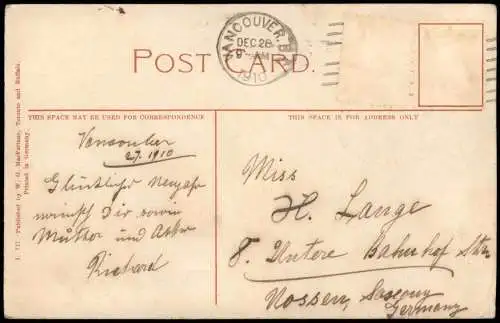 VANCOUVER, B.C.
DEC 28
1910
POST CARD.
THIS SPACE MAY BE USED FOR CORRESPONDENCE
THIS SPACE IS FOR ADDRESS ONLY
Published by W. G. MacFarlane, Toronto and Buffalo.
Printed in Germany.
Vancouver
27. 1910
Glückliches Neujahr
wünscht Dir sowie
Mutter und
Richard
Miss
H. Lange
8. Untere Bahnhof Str.
Nossen, Saxony
Germany